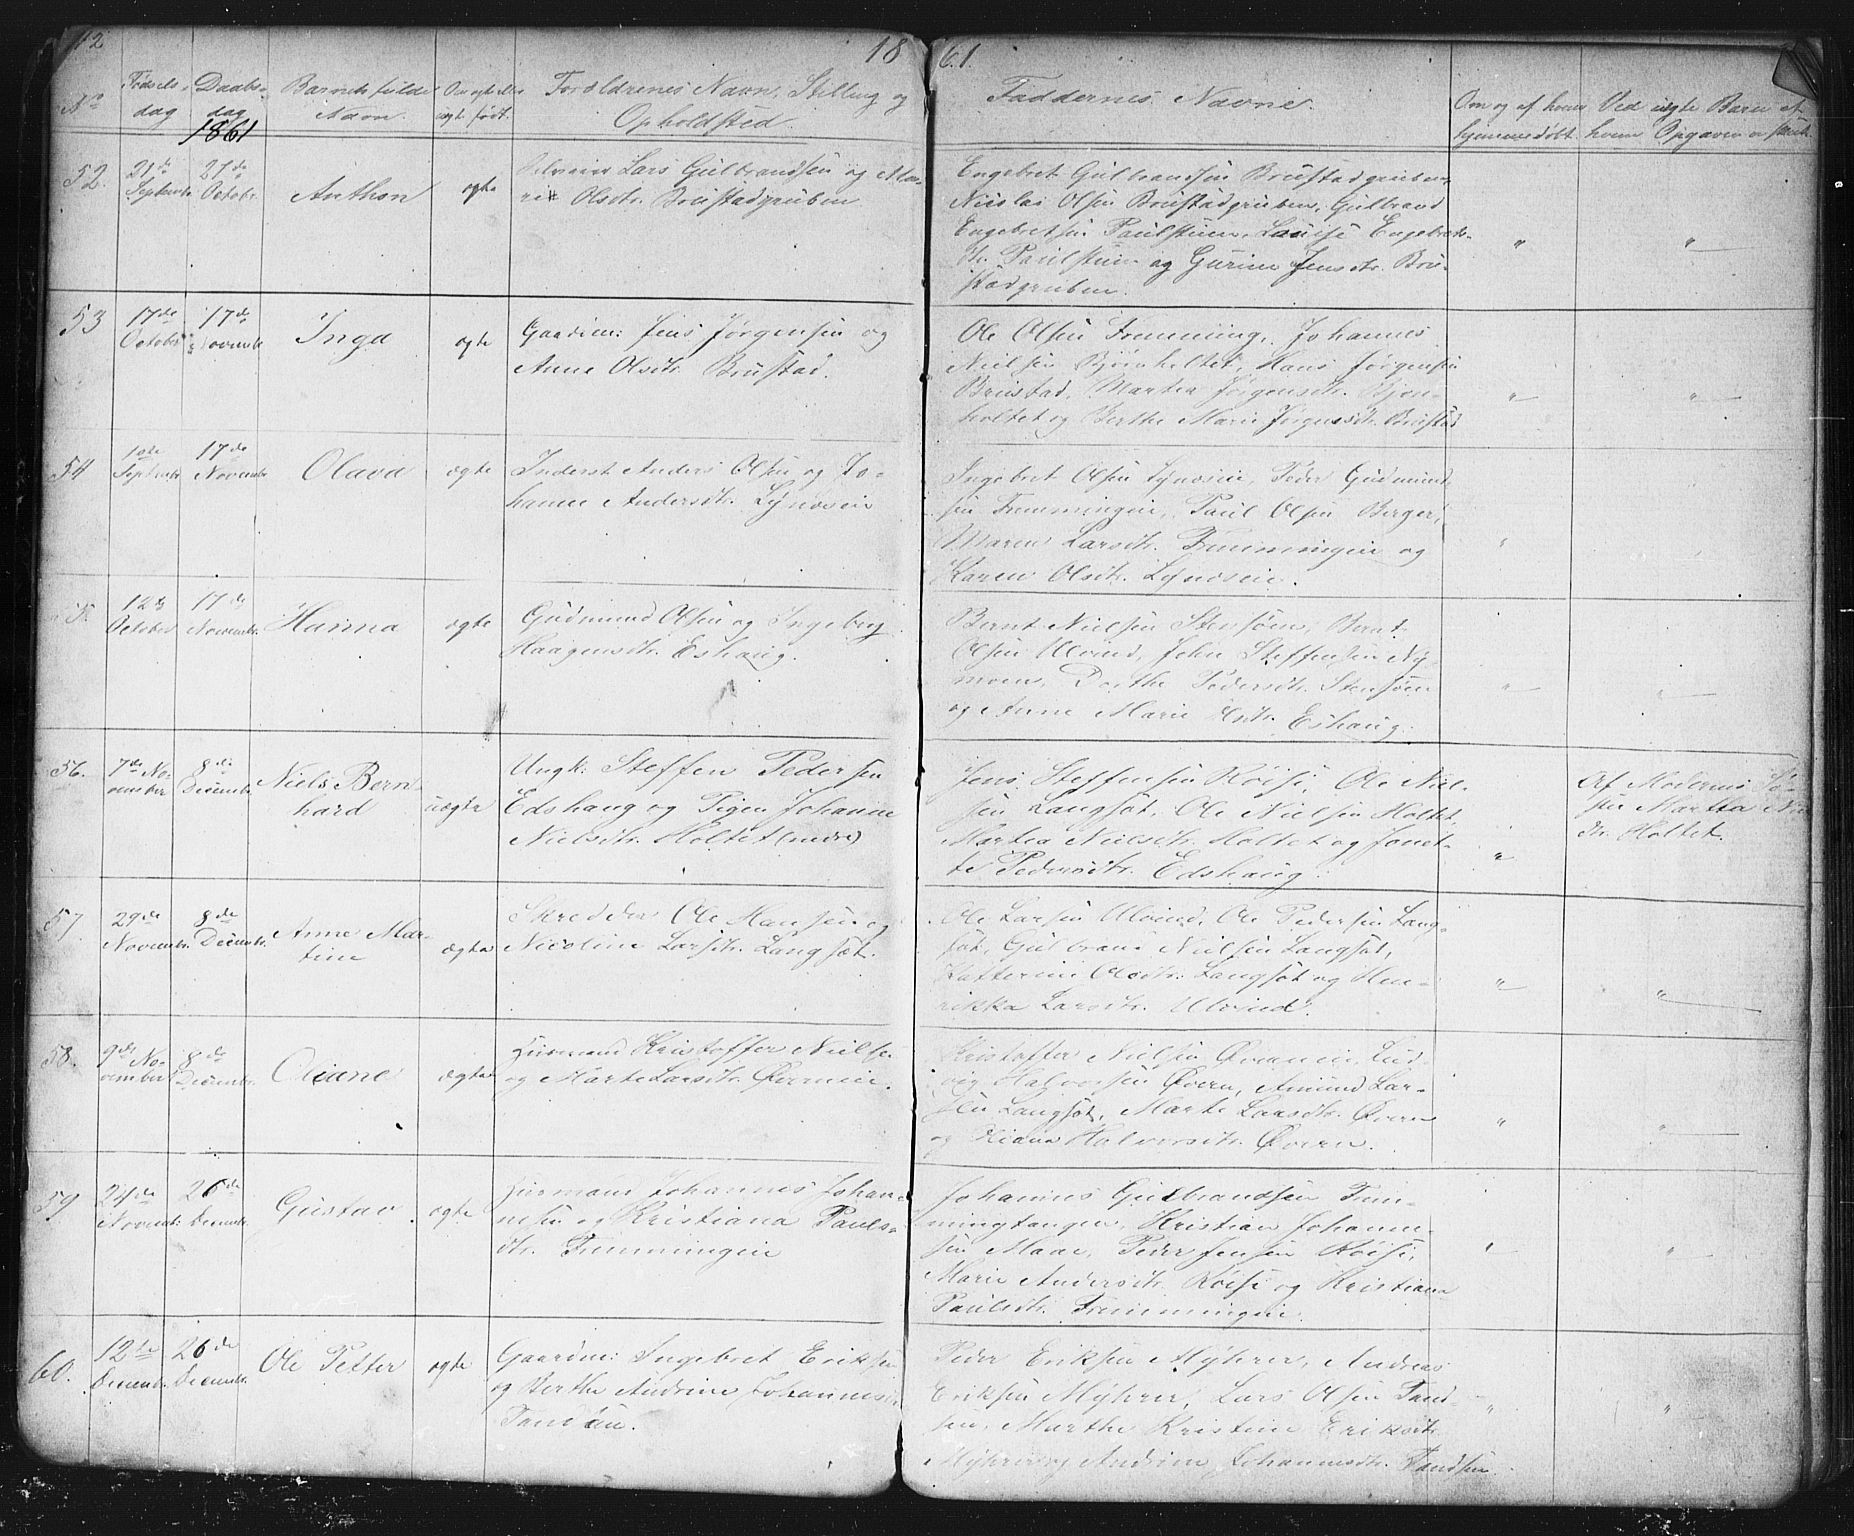 12
18 61.
No
Fødsels-
dag
Daabs-
dag
1861
Barnets fulde
Navn.
Om ægte eller
uægte født.
Forældrenes Navn, Stilling og
Opholdsted.
Faddernes Navne.
Om og af hvem
hjemmedøbt.
Ved uægte Barn af
hvem Opgaven er
52.
21de
Septembr
27de
Octobr.
Anthon
ægte
Lars Gulbrandsen og Ma-
rie Olsdtr. Brustadgruben
Engebret Gulbrandsen Brustadgruben,
Nicolai Olsen Brustadgruben, Gulbrand
Engebretsen Paulstuen, Louise Engebrets-
dtr. Paulstuen og Gurine Jensdtr. Bru-
stadgruben.
53
17de
October
17de
Novembr
Inga
ægte
Gaardm: Jens Jørgensen og
Anne Olsdtr. Brustad.
Ole Olsen Fremming, Johannes
Nielsen Bjørnholtet, Hans Jørgensen
Brustad, Marthea Jørgensdtr. Bjørn-
holtet og Berthe Marie Jørgensdtr. Brustad
54
1ste
Septembr
17de
Novembr
Olava
ægte
Inderst Anders Olsen og Jo-
hanne Andersdtr. Lynæseie
Ingebret Olsen Lynæseie, Peder Gudmund-
sen Fremmingeie, Paul Olsen Berger,
Maren Larsdtr. Fremmingeie og
Karen Olsdtr. Lynæseie.
55.
12te
October
17de
Novembr.
Hanna
ægte
Gudmund Olsen og Ingeborg
Haagensdtr. Eshaug.
Bernt Nielsen Stensøen, Bernt
Olsen Ulvind, John Steffensen Ny-
moen, Dorthe Pedersdtr. Stensøen
og Anne Marie Olsdtr. Eshaug.
56.
7de No-
vember
8de
Decembr.
Niels Bern-
hard
uægte
Ungk: Steffen Pedersen
Edshaug og Pigen Johanne
Nielsdtr. Holtet (nedre)
Jens Steffensen Røise, Ole Niel-
sen Langsæt, Ole Nielsen Holtet,
Marthea Nielsdtr. Holtet og Jonet-
te Pedersdtr. Edshaug.
Af Moderens Sø-
ster Marthea Niels
dtr. Holtet.
57.
29de
Novembr.
8de
Decembr.
Anne Mar-
tine
ægte
Skredder Ole Hansen og
Nicoline Larsdtr. Langsæt.
Ole Larsen Ulvind, Ole Pedersen Lang-
sæt, Gulbrand Nielsen Langsæt,
Katterine Olsdtr. Langsæt og Hen-
rikka Larsdtr. Ulvind.
58.
9de No-
vember
8de
Decembr.
Oliane
ægte
Husmand Kristoffer Nielsen
og Marte Larsdtr. Øverneie.
Kristoffer Nielsen Øverneie, Lud-
vig Halvorsen Øvern, Amund Lar-
sen Langsæt, Marte Larsdtr. Øvern
og Oliana Halvorsdtr. Øvern.
59
24de
Novembr.
26de
Decembr.
Gustav.
ægte
Husmand Johannes Johan-
nesen og Kristiana Pauls-
dtr. Fremmingeie
Johannes Gulbrandsen Frem-
mingtangen, Kristian Johanne-
sen Maae, Peder Jensen Røise,
Marie Andersdtr. Røise og Kristiane
Paulsdtr. Fremmingeie.
60.
12te
Decembr.
26de
Decembr.
Ole Petter
ægte
Gaardm: Ingebret Eriksen
og Berthe Andrine Johannesd.
Tandsæn.
Peder Eriksen Myhrer, Andreas
Eriksen Myhrer, Lars Olsen Tand-
sen, Marthe Kristine Eriksdtr.
Myhrer og Andrine Johannesdtr. Tandsen.